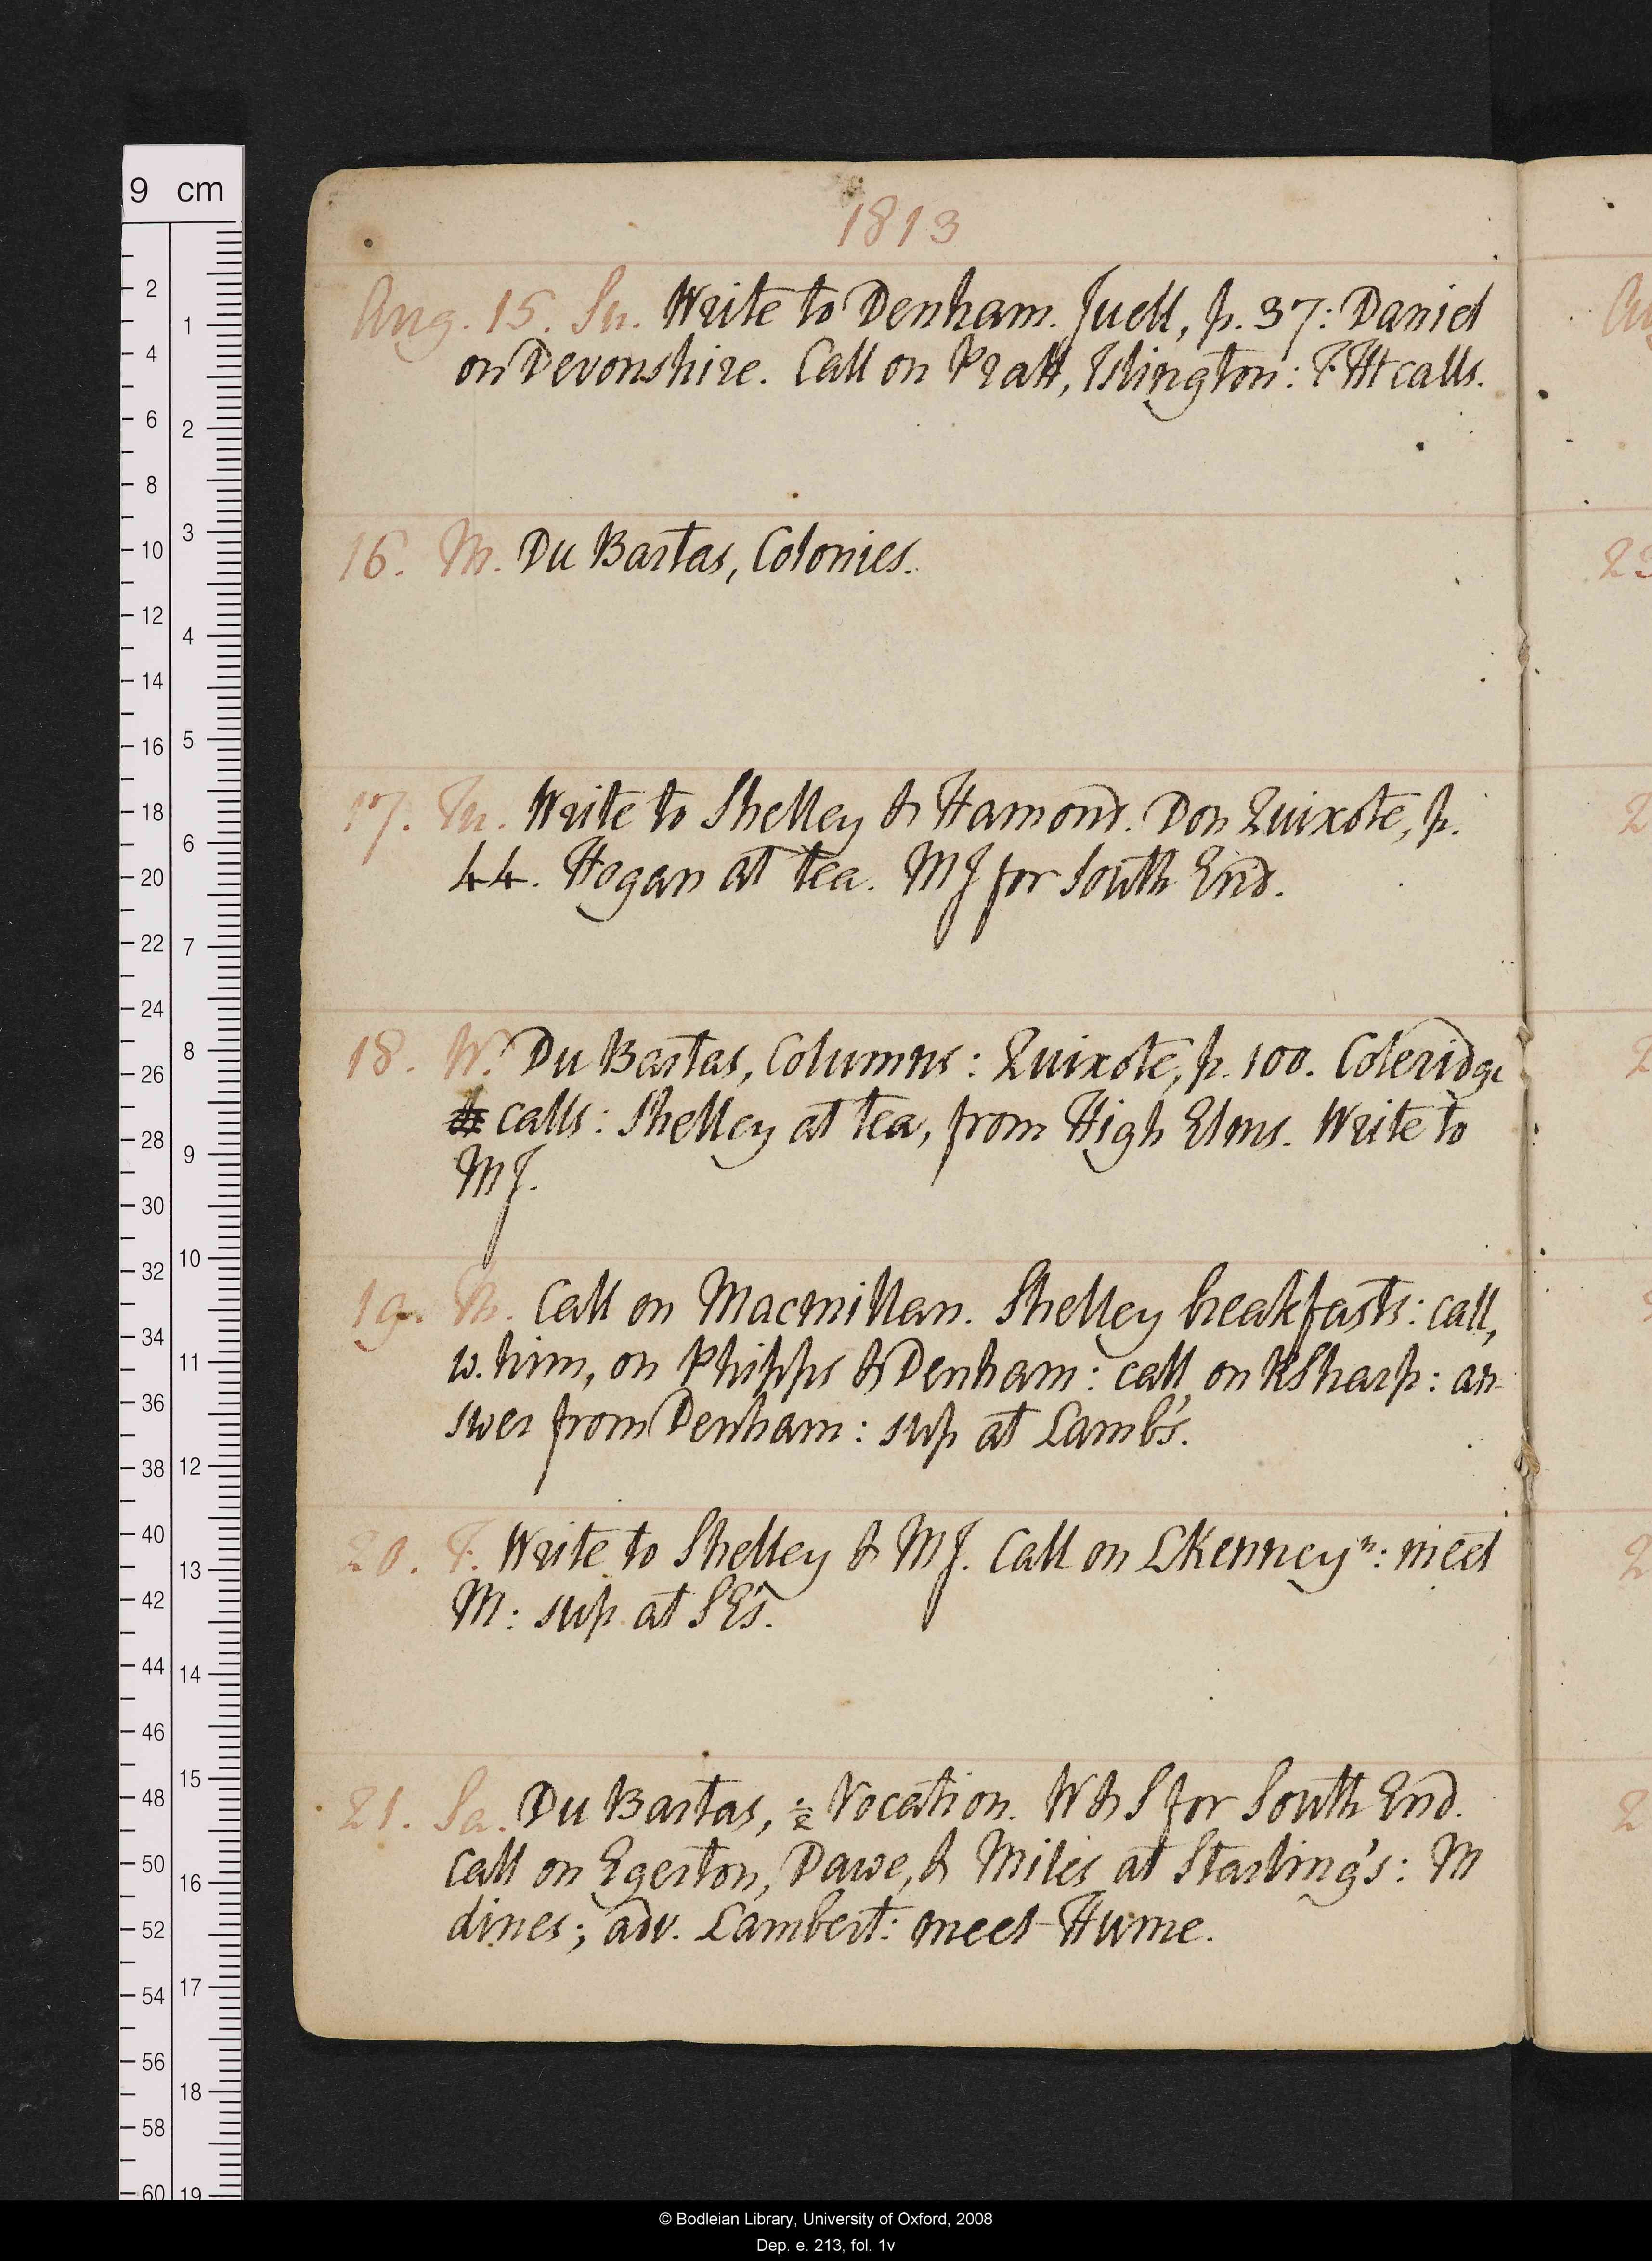 1813
Aug. 15. Su. Write to Denham. Juell, p. 37: Daniel
on Devonshire. Call on Pratt, Islington: F. Ht calls.
16. M. Du Bartas, Colonies.
17. Tu. Write to Shelley & Hamond. Don Quixote, p.
44. Hogan at tea. MJ for South End.
18. W. Du Bartas, Columns: Quixote, p. 100. Coleridge
& calls: Shelley at tea, from High Elms. Write to
MJ.
19. Th. Call on Macmillan. Shelley breakfasts: call,
w. him, on Phipps & Denham: call on RSharp: an-
swer from Denham: sup at Lamb's.
20. F. Write to Shelley & MJ. Call on LKenney n: meet
M: sup at SE's.
21. Sa. Du Bartas, ½ Vocation. W & S for South End.
Call on Egerton, Dawe, & Miles at Starling's: M
dines; adv. Lambert: meet Hume.
9 cm
2 4 6 8 10 12 14 16 18 20 22 24 26 28 30 32 34 36 38 40 42 44 46 48 50 52 54 56 58 60
1 2 3 4 5 6 7 8 9 10 11 12 13 14 15 16 17 18 19
© Bodleian Library, University of Oxford, 2008
Dep. e. 213, fol. 1v